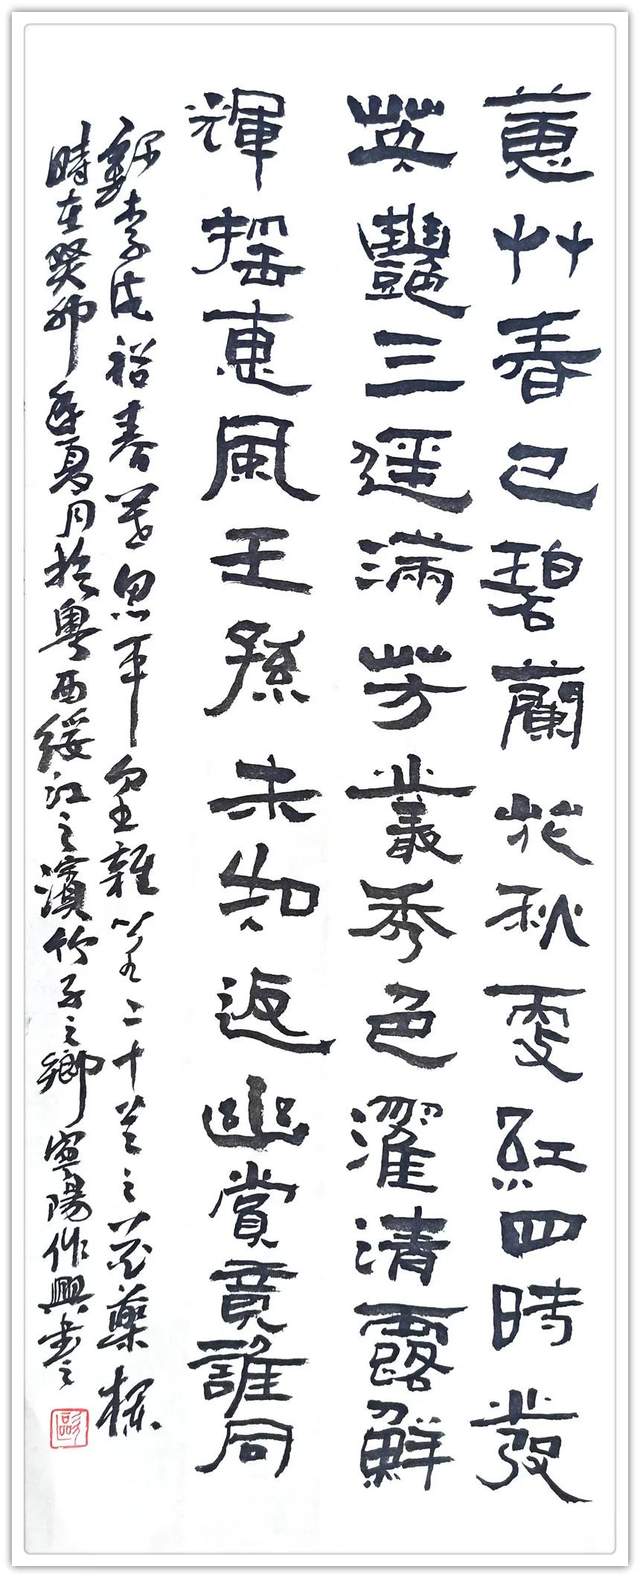 蕙艸春已碧蘭花秋更紅四時發
英豔三逕滿芳叢秀色濯清露鮮
輝摇惠風王孫未知返幽賞竟誰同
錄李德裕春暮思平泉雜詠二十首之花藥欄
時在癸卯年夏月於粵西綏江之濱竹子之鄉寧陽作興書之